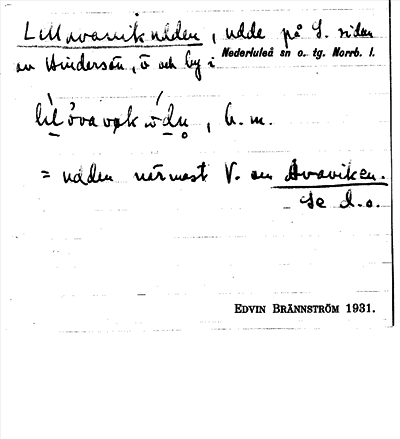 Lillavavikudden, udde på S. sidan
av Hindersön, ö och by i Nederluleå sn o. tg. Norrb. l.
b.m.
= udden närmast V. om Avaviken.
Se d.o.
EDVIN BRÄNNSTRÖM 1931.